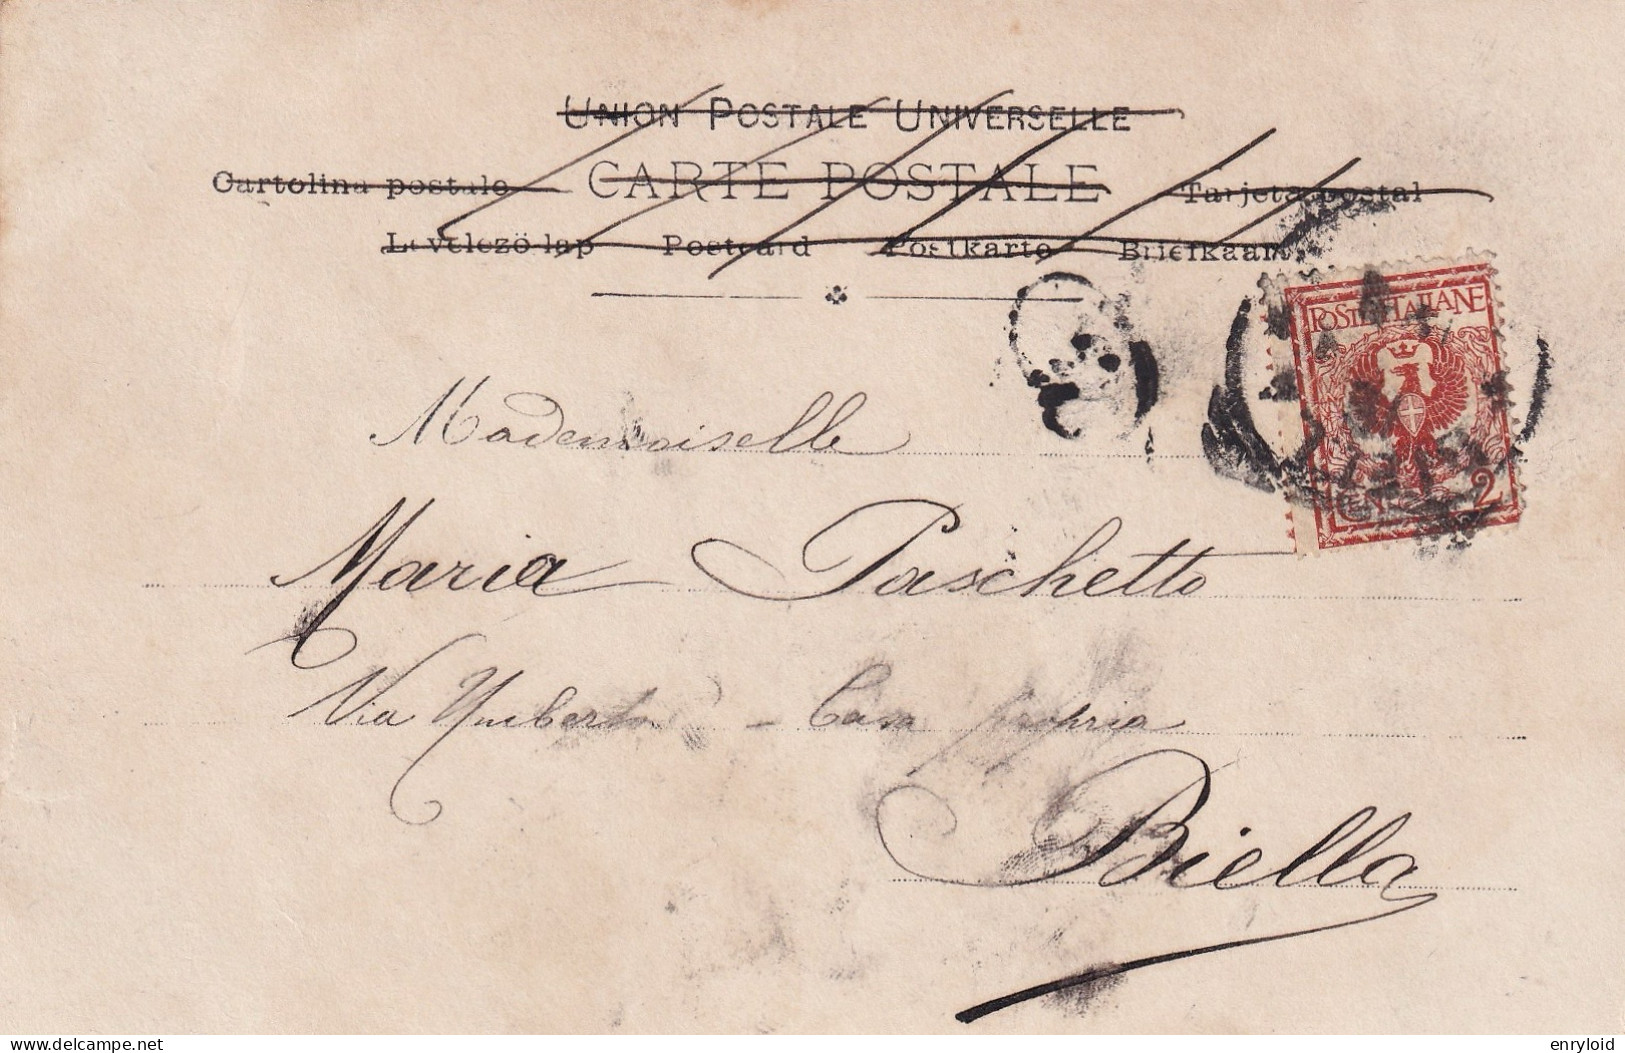 UNION POSTALE UNIVERSELLE
CARTE POSTALE
Cartolina postale
Tarjeta postal
Levelező lap Postcard Postkarte Briefkaart
POSTE ITALIANE
CENT. 2
Mademoiselle
Maria Paschetto
Via Umberto - Casa propria
Biella
delcampe.net
enryloid